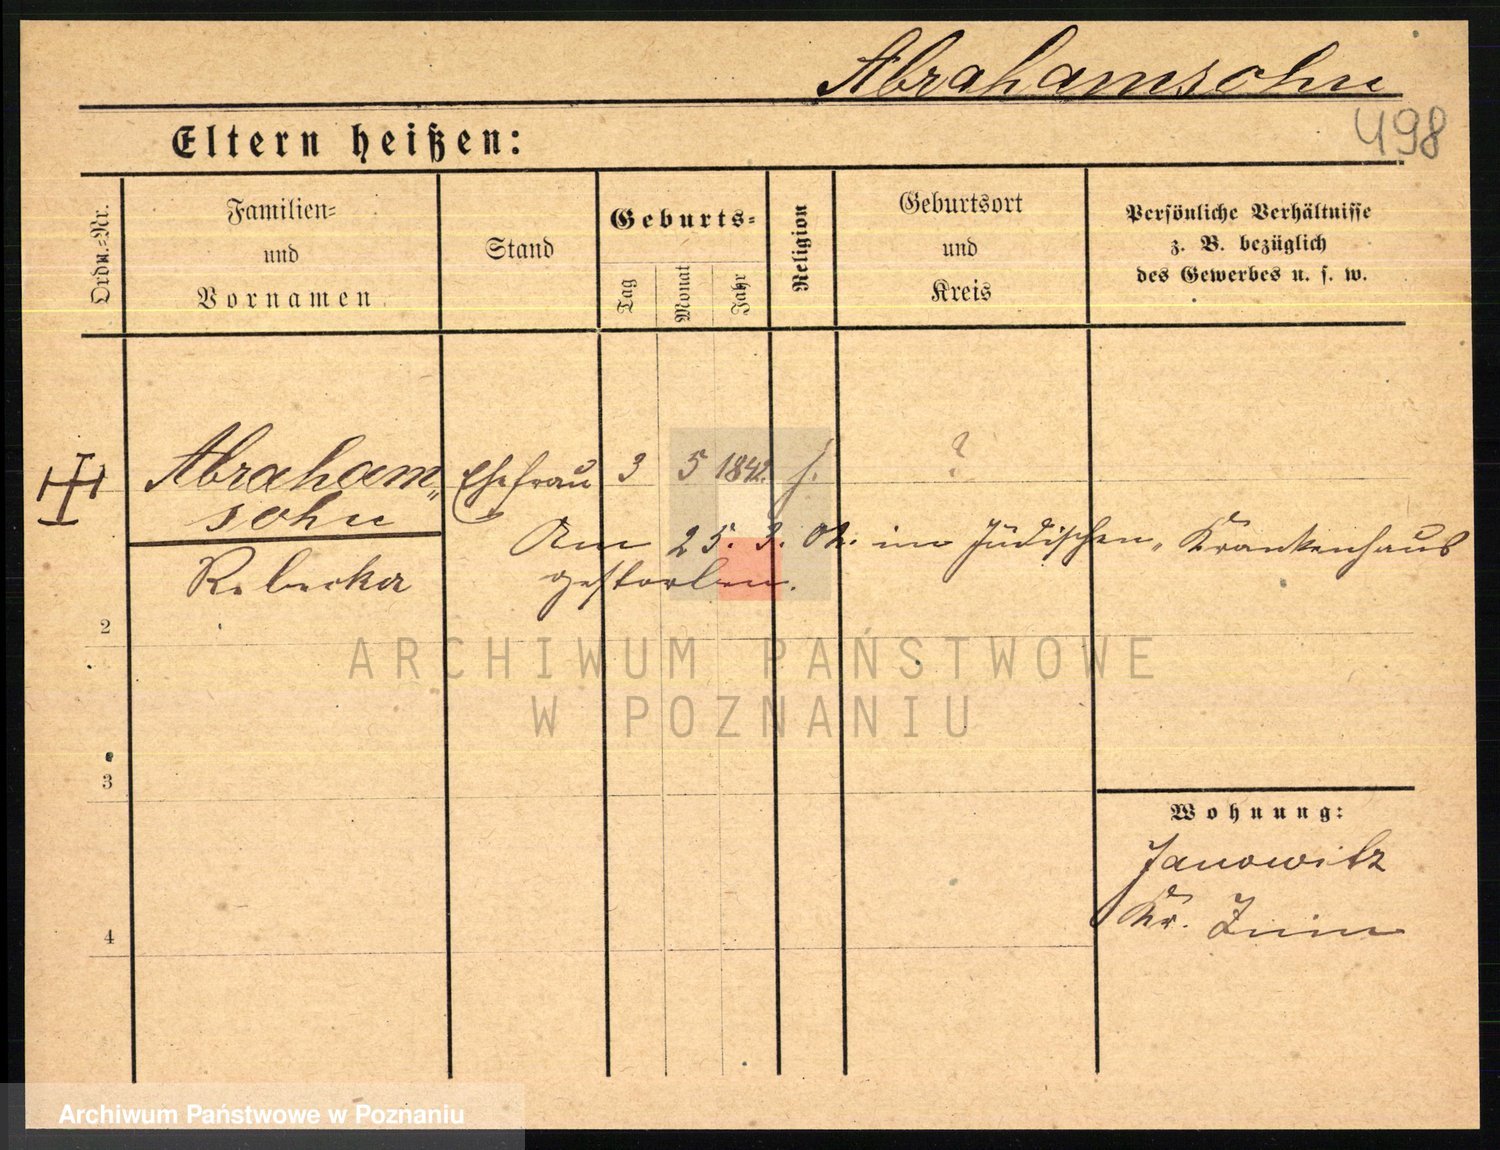 Abrahamsohn
498
Eltern heißen:
Ordn.=Nr.
Familien=
und
Vornamen
Stand
Geburts=
Tag
Monat
Jahr
Religion
Geburtsort
und
Kreis
Persönliche Verhältnisse
z. B. bezüglich
des Gewerbes u. s. w.
Abraham„
sohn
Rebecka
Ehefrau 3 5 1842. j. ?
Am 25. 3. 02. im Jüdischen Krankenhaus
gestorben.
2
3
4
ARCHIWUM PAŃSTWOWE
W POZNANIU
Wohnung:
Janowitz
Kr. Znin
Archiwum Państwowe w Poznaniu